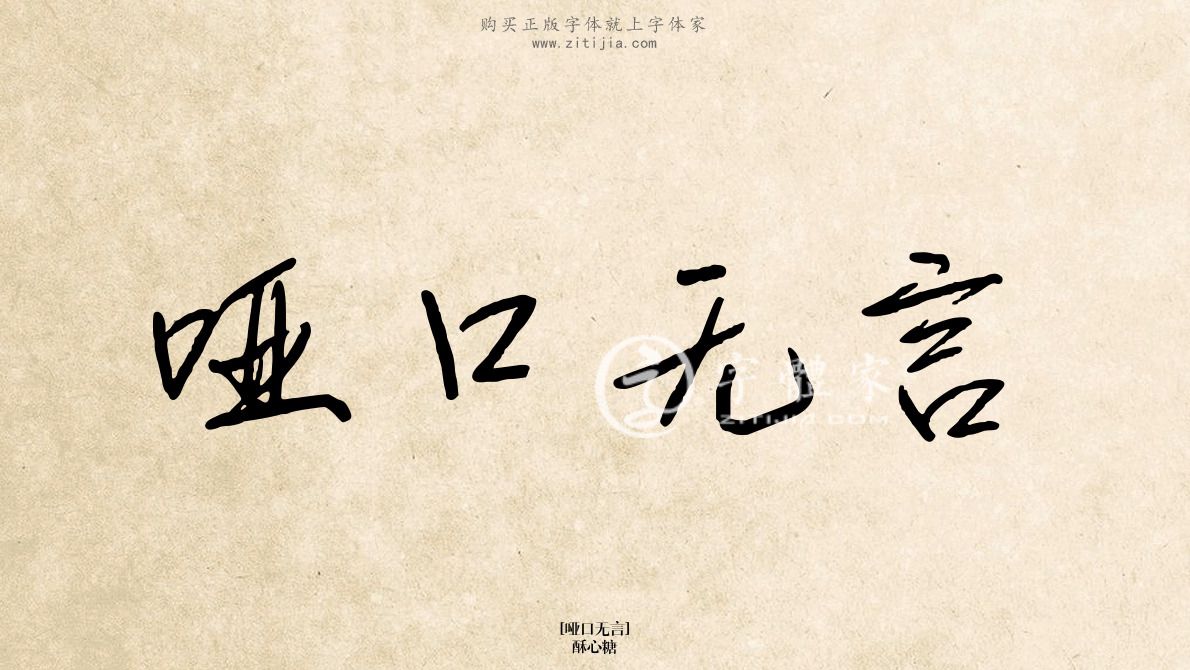 购买正版字体就上字体家
www.zitijia.com
哑口无言
字體家
ZITIJIA.COM
[哑口无言]
酥心糖